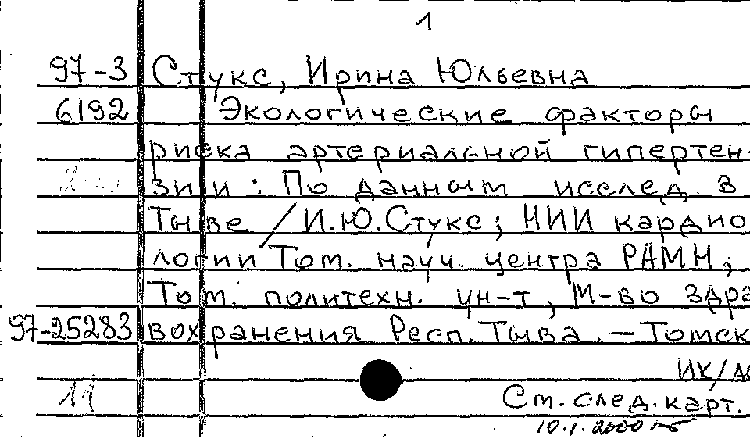 1
97-3 Стукс, Ирина Юльевна
6192 Экологические факторы
риска артериальной гипертен-
зии: По данным исслед в
Тыве / И.Ю.Стукс; НИИ кардио
логии Том. науч. центра РАМН;
Том. политехн. ун-т, М-во здра
97-25283 вохранения Респ. Тыва. - Томск
ИК/М
11 См. след. карт.